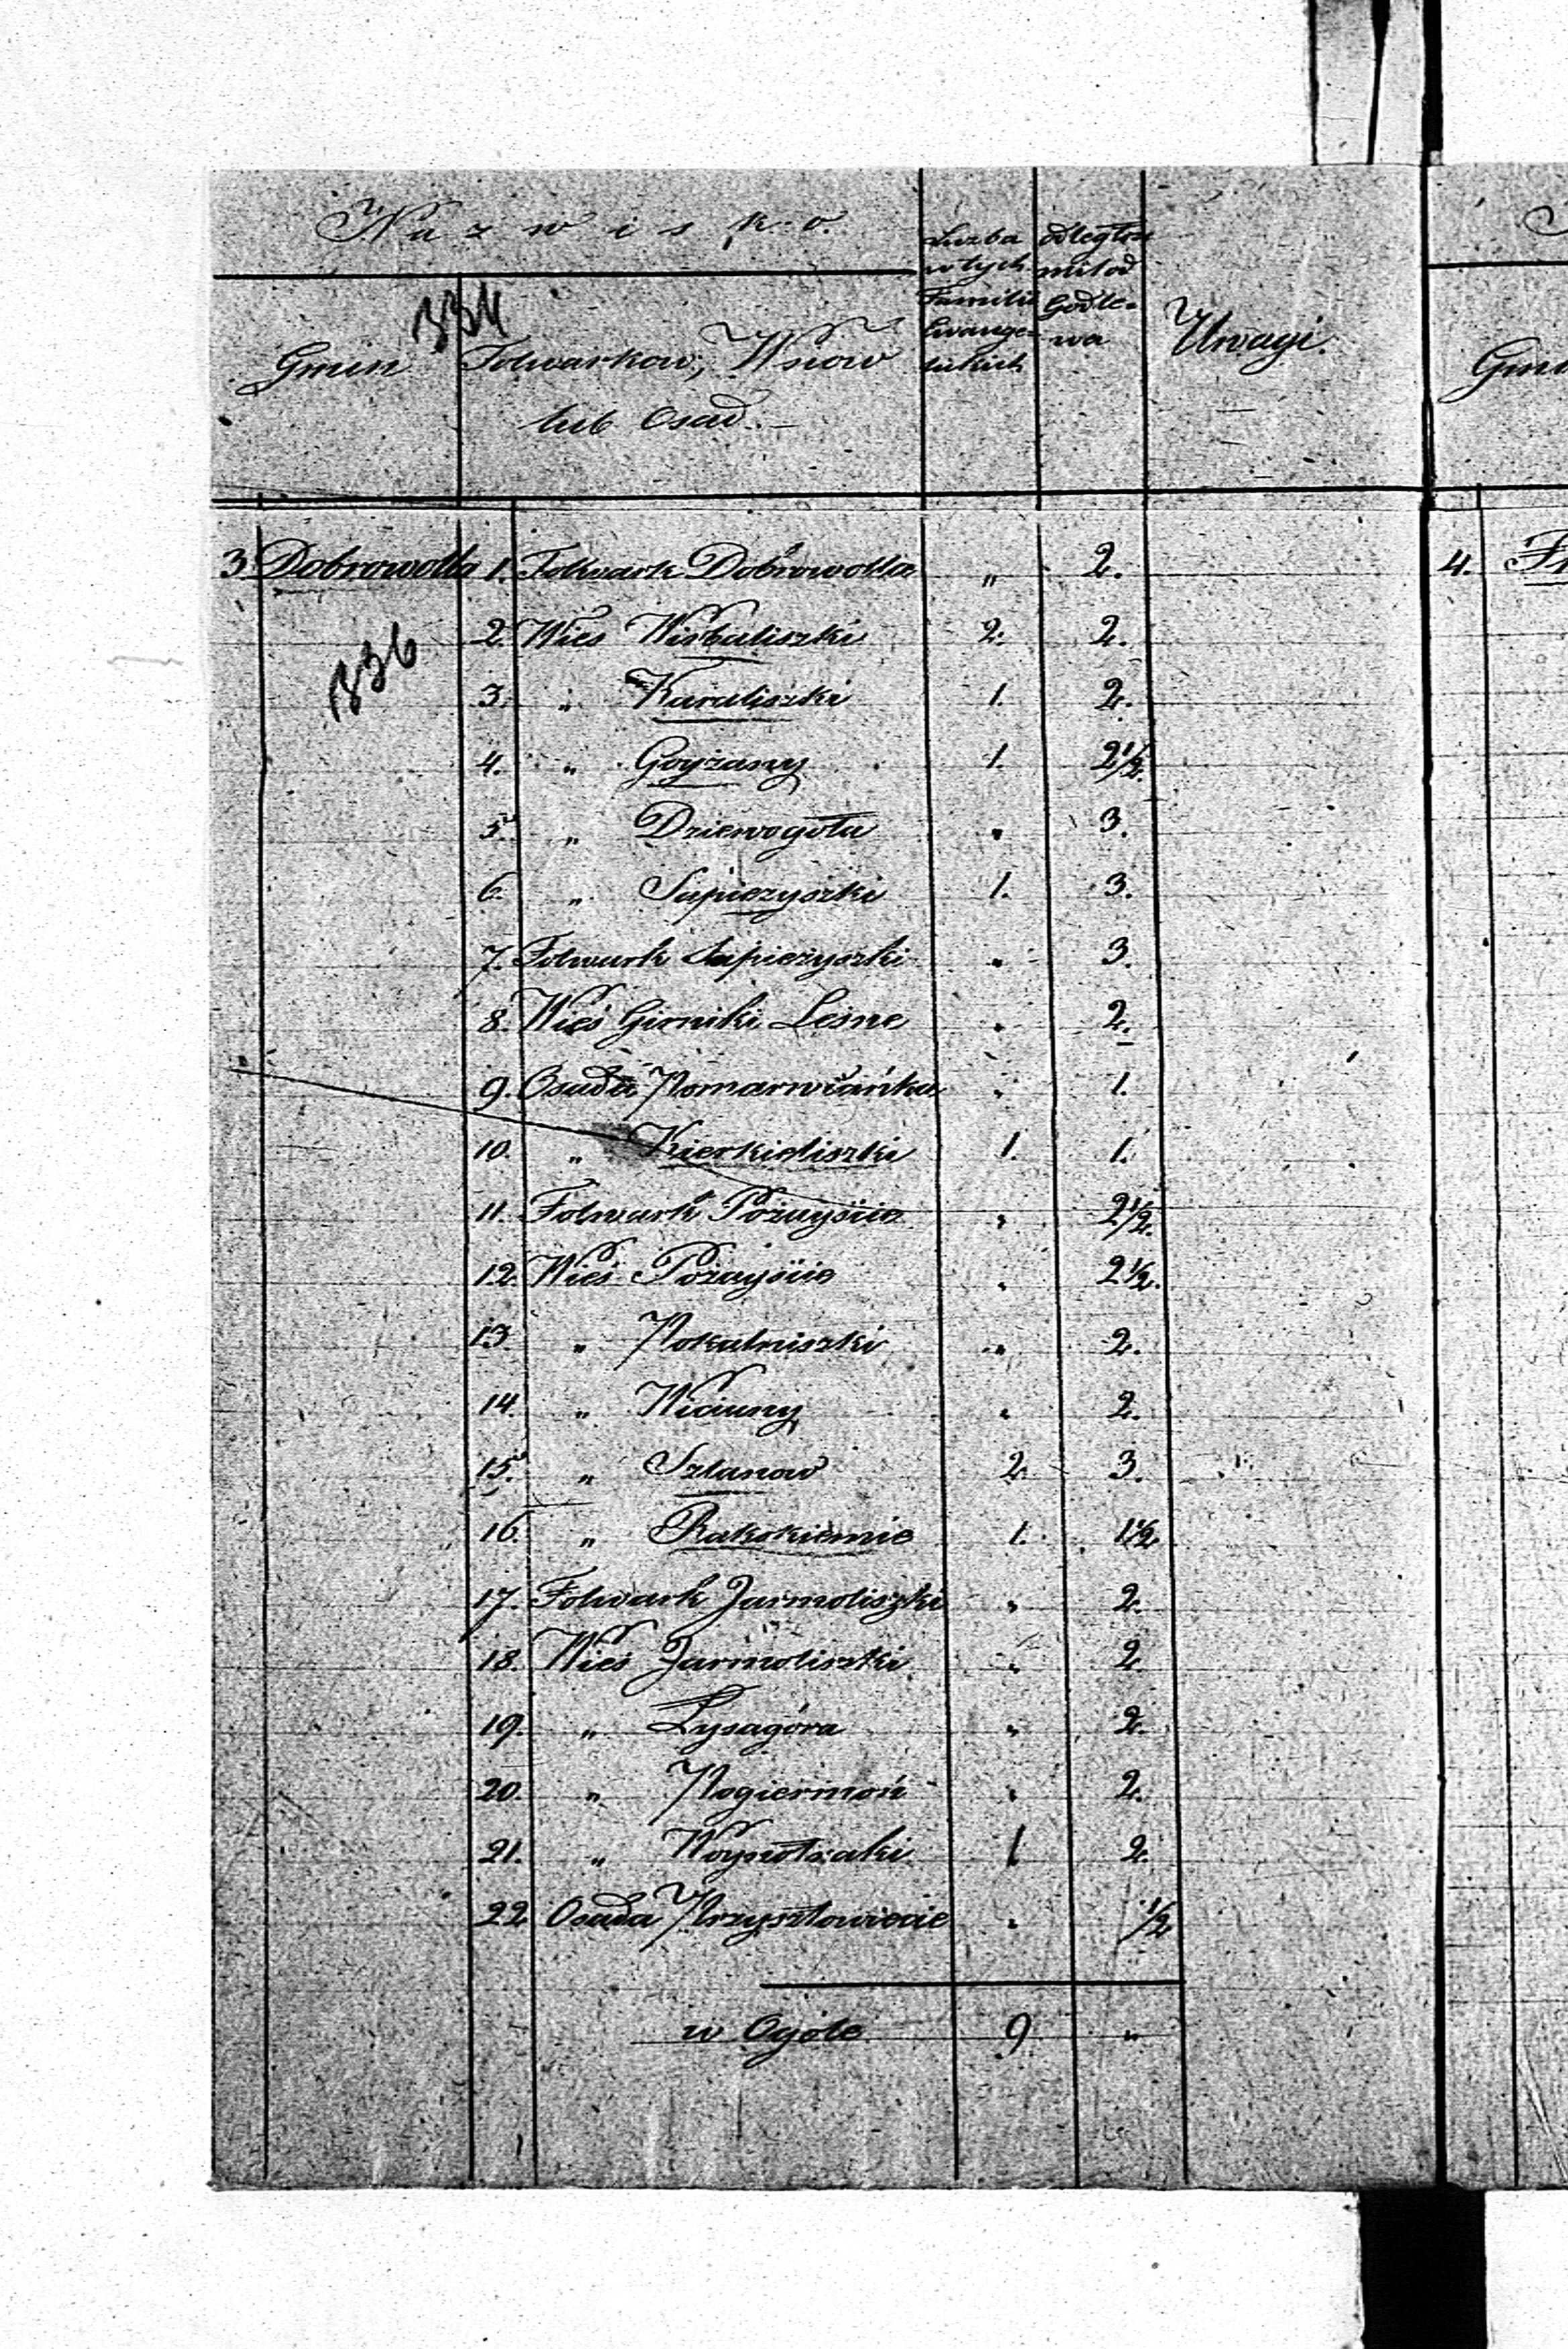 Nazwisko
Liczba w tych Familii Ewangelickich
odległość mil od Godlewa
Uwagi.
334
Gmin
Folwarkow, Wsiow
lub Osad.
3. Dobrowolla 1. Folwark Dobrowolla „ 2.
336
2. Wies Wirbaliszki 2. 2.
3. „ Karaliszki 1. 2.
4. „ Goyżany 1. 2½
5. „ Dziewogoła „ 3.
6. „ Sapieżyszki 1. 3.
7. Folwark Sapieżyszki „ 3.
8. Wieś Girniki Leśne „ 2.
9. Osada Pomarwianka „ 1.
10. „ Kierkieliszki 1. 1.
11. Folwark Pożayście „ 2½
12. Wieś Pożayście „ 2½.
13. „ Pokalniszki „ 2.
14. „ Wiciuny „ 2.
15. „ Szlanow 2. 3.
16. „ Rakokiemie 1. 1½
17. Folwark Jarmoliszki „ 2.
18. Wieś Jarmoliszki „ 2
19. „ Łysagóra „ 2.
20. „ Pogiermoń „ 2.
21. „ Woynotraki 1 2.
22 Osada Przysztowiecie „ ½
w Ogóle 9 „
4.
Gmi